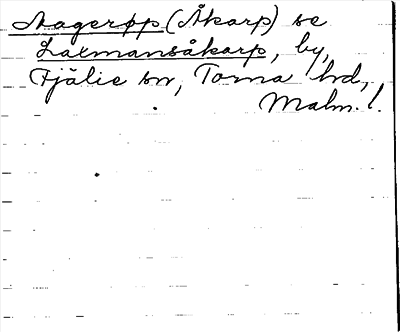 Stagerpp (Åkarp) se
Laxmansåkarp, by,
Fjälie sn, Torna hd,
Malm. l.